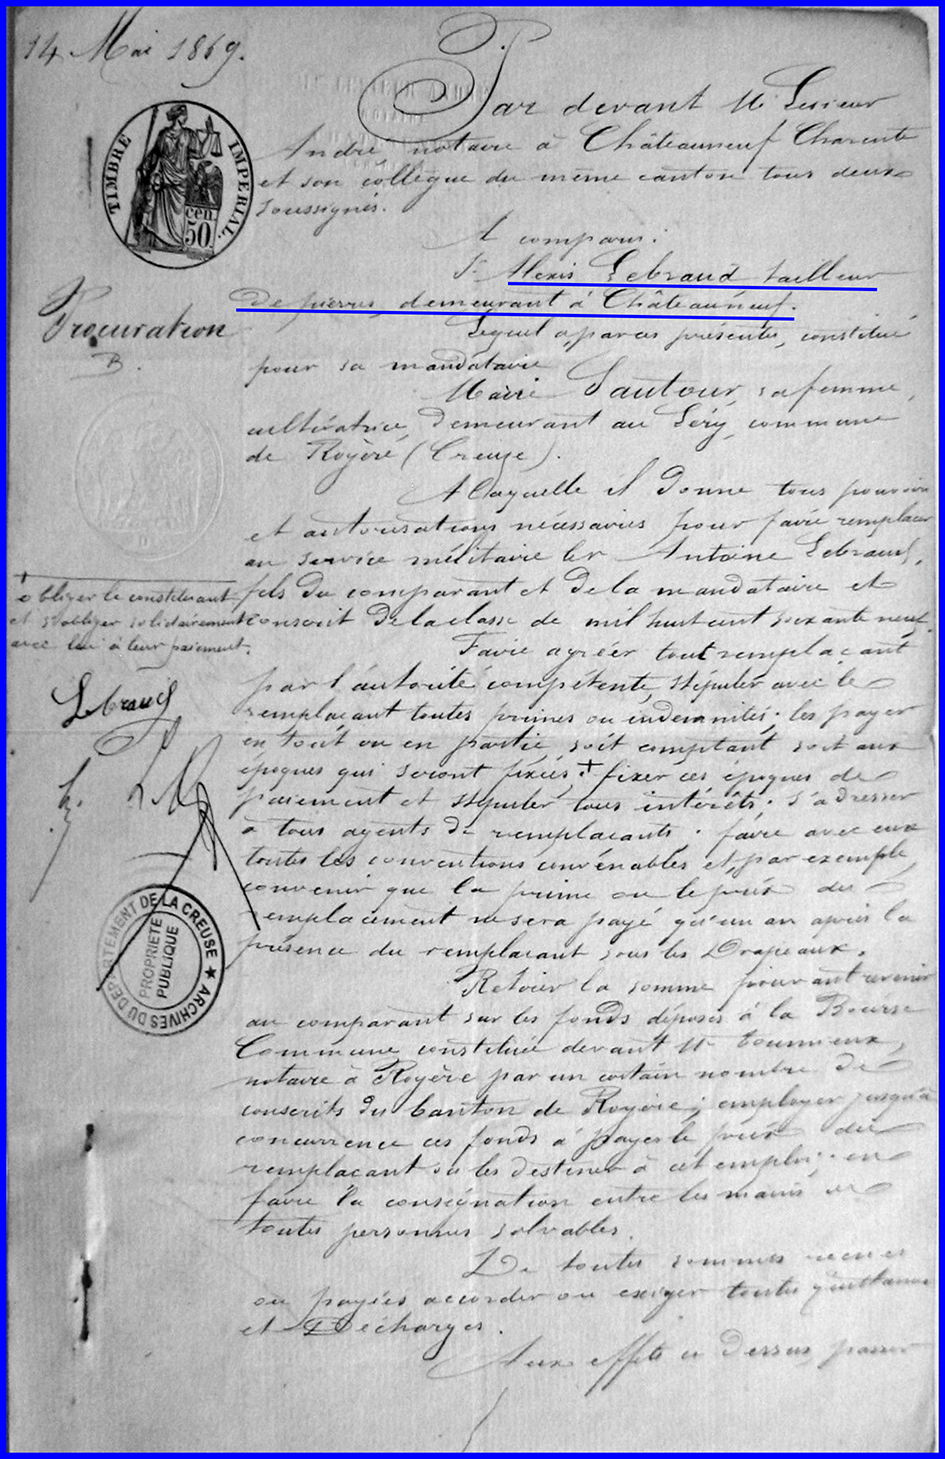 14 Mai 1869.
Par devant Me Lesieur
André notaire à Châteauneuf Charente
et son collègue du même canton tous deux
soussignés.
TIMBRE IMPERIAL
50 cen.
A comparu:
Sr Alexis Lebraud tailleur
de pierres, demeurant à Châteauneuf.
Procuration
B.
Lequel a, par ces présentes, constitué
pour sa mandataire
Marie Sautour, sa femme,
cultivatrice, demeurant au Léry, commune
de Royère (Creuse).
A laquelle il donne tous pouvoirs
et autorisations nécessaires pour faire remplacer
au service militaire le sr Antoine Lebraud,
fils du comparant et de la mandataire et
conscrit de la classe de mil huit cent soixante neuf.
+ obliger le constituant
et s'obliger solidairement
avec lui à leur paiement.
Lebraud
Faire agréer tout remplaçant
par l'autorité compétente, stipuler avec le
remplaçant toutes primes ou indemnités; les payer
en tout ou en partie, soit comptant soit aux
époques qui seront fixées; + fixer ces époques de
paiement et stipuler tous intérêts; s'adresser
à tous agents de remplacements; faire avec eux
toutes les conventions convenables et, par exemple,
convenir que la prime ou le prix du
remplacement ne sera payé qu'un an après la
présence du remplacant sous les Drapeaux.
DEPARTEMENT DE LA CREUSE ★ ARCHIVES DU
PROPRIETE
PUBLIQUE
Retirer la somme pouvant revenir
au comparant sur les fonds déposés à la Bourse
Commune constituée devant Me
notaire à Royère par un certain nombre de
conscrits du Canton de Royère; employer jusqu'à
concurrence ces fonds à payer le prix du
remplaçant ou les destiner à cet emploi; en
faire la consignation entre les mains de
toutes personnes solvables.
De toutes sommes reçues
ou payées accorder ou exiger toutes quittances
et Décharges.
Aux effets ci dessus, passer